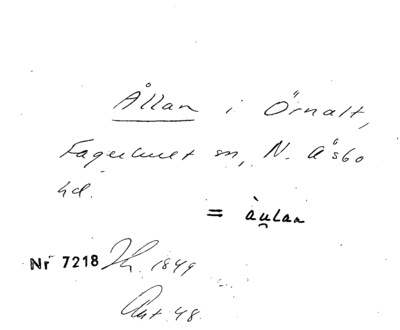 Ållan i Örnalt,
Fagerhult sn, N. Åsbo
hd.
= àu̮lan
Nr 7218 Th. 1849
Ant. 48.